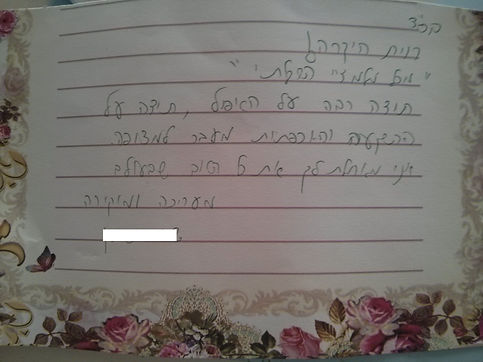 בס"ד
רונית היקרה!
"מכל מלמדיי השכלתי"
תודה רבה על הטיפול, תודה על
ההשקעה והאכפתיות מעבר למצופה.
אני מאחלת לך את כל הטוב שבעולם
מעריכה ומוקירה